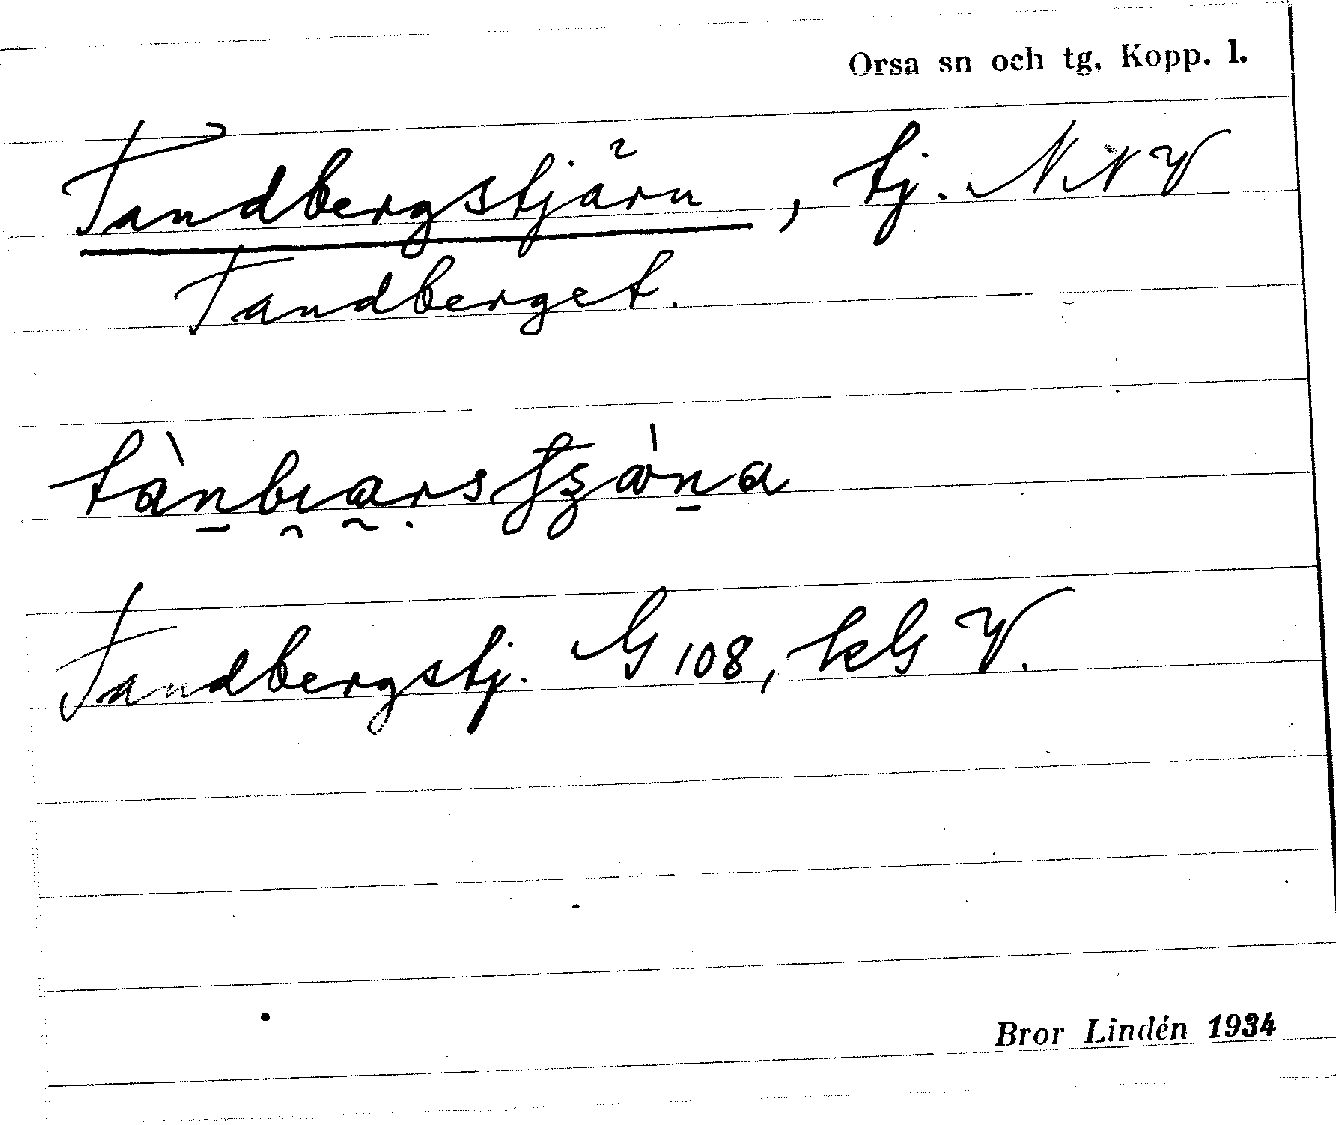 Orsa sn och tg, Kopp. l.
Tandbergstjärn, tj. NNV
Tandberget.
Tandbergstj. G 108, kG V.
Bror Lindén 1934